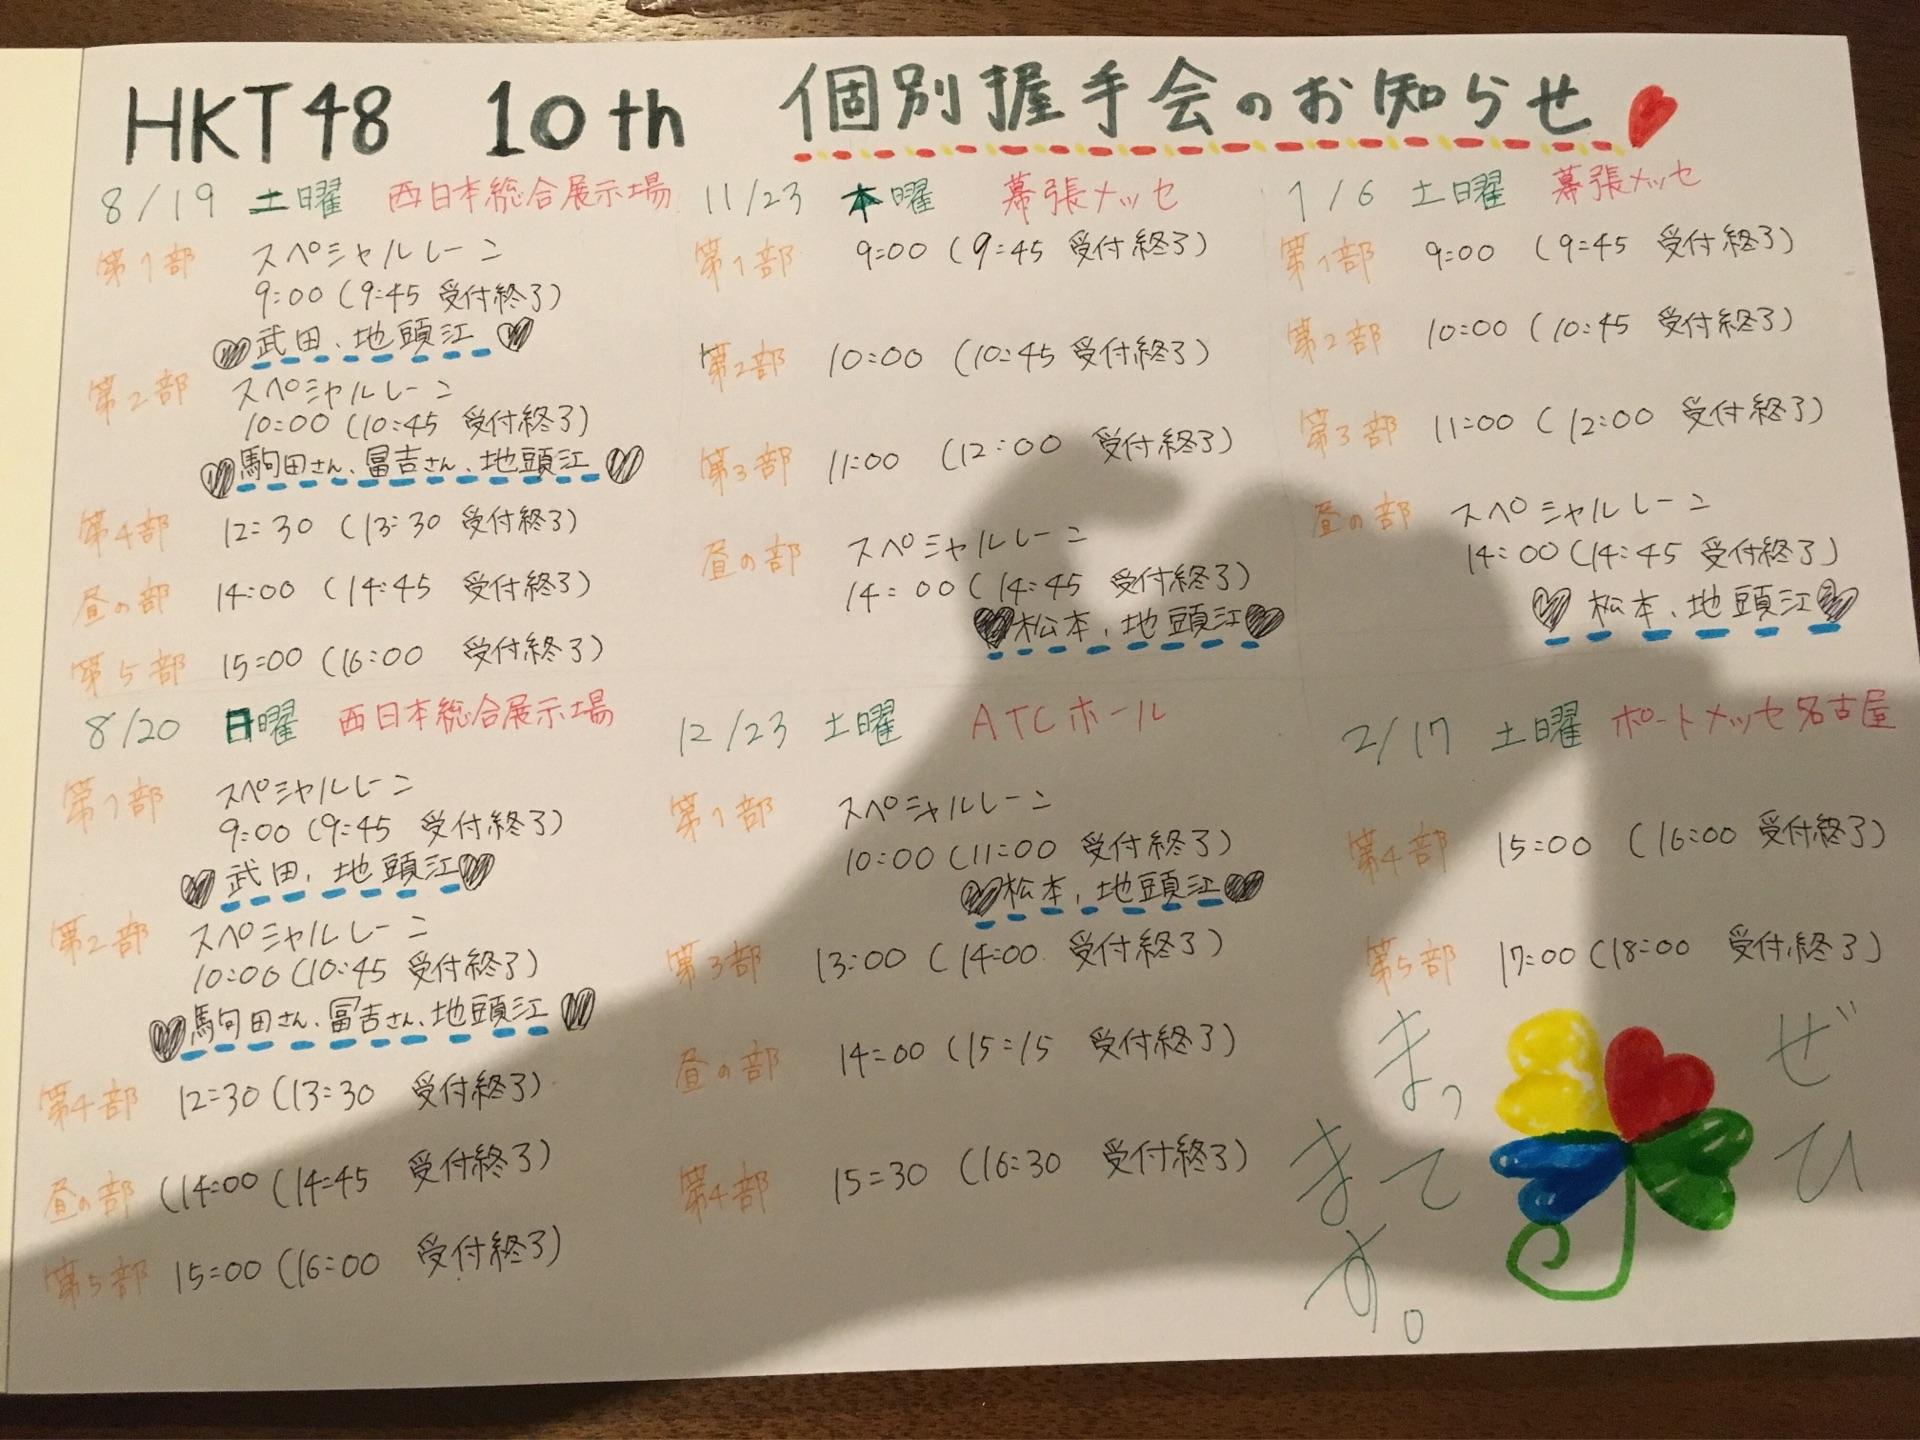 HKT48 10th 個別握手会のお知らせ
8/19 土曜 西日本総合展示場
第1部 スペシャルレーン
9:00 (9:45 受付終了)
武田、地頭江
第2部 スペシャルレーン
10:00 (10:45 受付終了)
駒田さん、冨吉さん、地頭江
第4部 12:30 (13:30 受付終了)
昼の部 14:00 (14:45 受付終了)
第5部 15:00 (16:00 受付終了)
8/20 日曜 西日本総合展示場
第1部 スペシャルレーン
9:00 (9:45 受付終了)
武田、地頭江
第2部 スペシャルレーン
10:00 (10:45 受付終了)
駒田さん、冨吉さん、地頭江
第4部 12:30 (13:30 受付終了)
昼の部 (14:00 (14:45 受付終了)
第5部 15:00 (16:00 受付終了)
11/23 木曜 幕張メッセ
第1部 9:00 (9:45 受付終了)
第2部 10:00 (10:45 受付終了)
第3部 11:00 (12:00 受付終了)
昼の部 スペシャルレーン
14:00 (14:45 受付終了)
松本、地頭江
12/23 土曜 ATCホール
第1部 スペシャルレーン
10:00 (11:00 受付終了)
松本、地頭江
第3部 13:00 (14:00 受付終了)
昼の部 14:00 (15:15 受付終了)
第4部 15:30 (16:30 受付終了)
1/6 土曜 幕張メッセ
第1部 9:00 (9:45 受付終了)
第2部 10:00 (10:45 受付終了)
第3部 11:00 (12:00 受付終了)
昼の部 スペシャルレーン
14:00 (14:45 受付終了)
松本、地頭江
2/17 土曜 ポートメッセ名古屋
第4部 15:00 (16:00 受付終了)
第5部 17:00 (18:00 受付終了)
ぜひ
まって
ます。